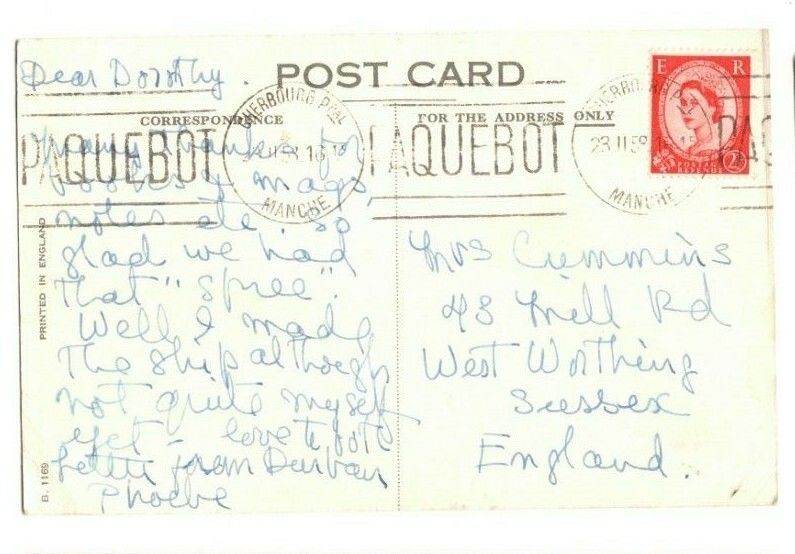 Dear Dorothy.
POST CARD
CORRESPONDENCE
FOR THE ADDRESS ONLY
PAQUEBOT
CHERBOURG
16
MANCHE
PAQUEBOT
CHERBO
23 11 58
MANCHE
PAQ
E R
POSTAGE
REVENUE
2½
Many thanks for
books & mags,
notes etc. So
glad we had
that "Spree".
Well I made
the ship although
not quite myself
yet love to
letter from Durban
Phoebe
Mrs Cummins
43 Mill Rd
West Worthing
Sussex
England.
PRINTED IN ENGLAND
B. 1169